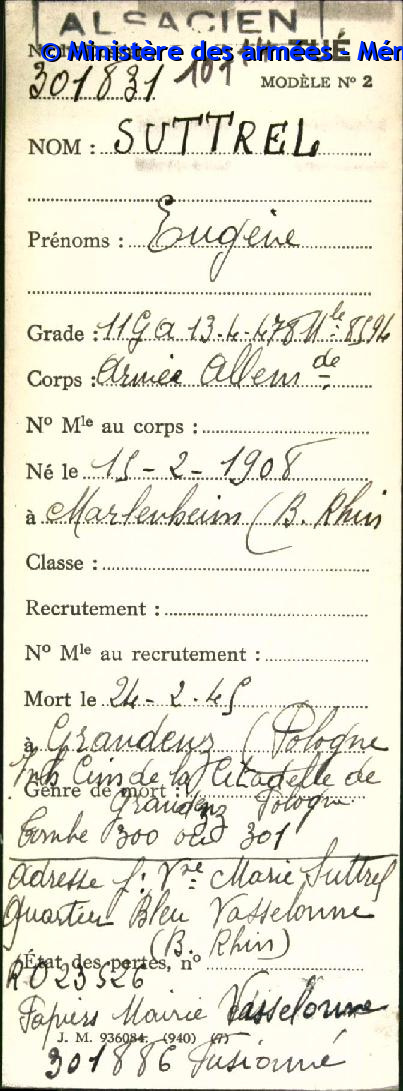 ALSACIEN
© Ministère des armées - Mém
TUÉ
301831
MODÈLE Nº 2
NOM : SUTTREL
Prénoms : Eugène
Grade : 11 G a 13-4-478 Mle 8594
Corps : Armée Allemde
Nº Mle au corps :
Né le 15-2-1908
à Marlenheim (B. Rhin
Classe :
Recrutement :
Nº Mle au recrutement :
Mort le 24-2-45
à Graudenz (Pologne
Inh Cim de la Citadelle de
Genre de mort :
Graudenz Pologne
Tombe 300 ou 301
adresse f: Vve Marie Suttrel
Quartier Bleu Vasselonne
(B. Rhin)
État des pertes, nº
RO23526
Papiers Mairie Vasselonne
J. M. 936084. (940) (7)
301886 Fusionné